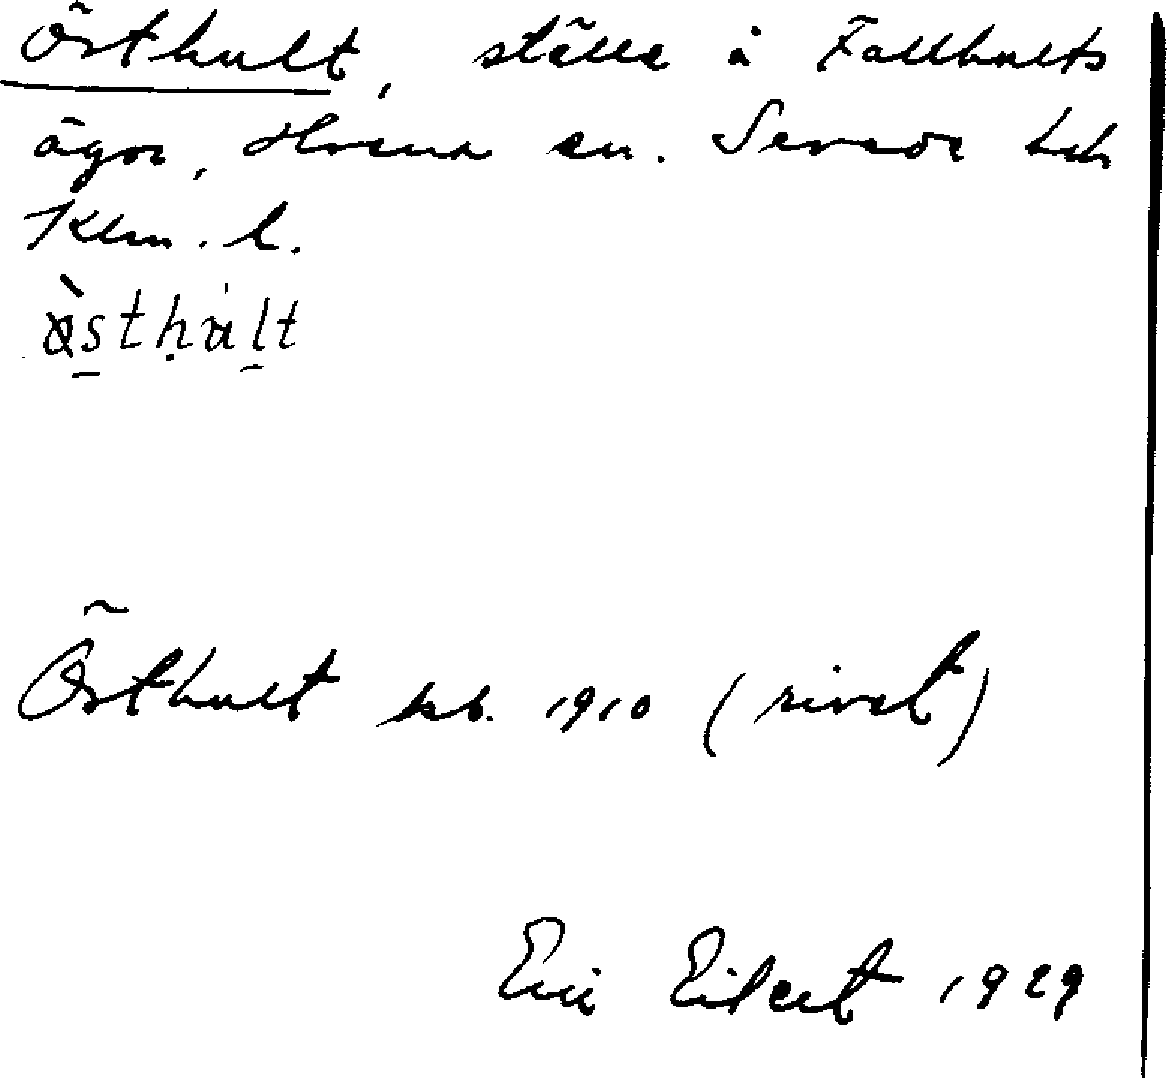 Östhult, ställe å Fallhults
ägor, Hvena sn. Sevede hd
Klm. l.
Östhult ksb. 1910 (rivet)
Eric Eilert 1929